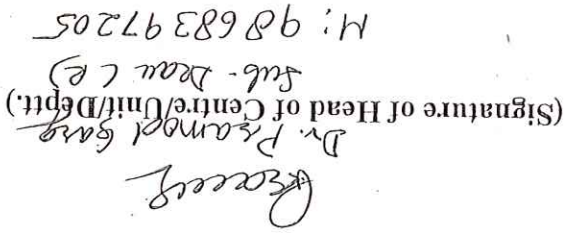 Dr. Pramod Garg
(Signature of Head of Centre/Unit/Deptt.)
Sub-Dean (R)
M: 9868397205